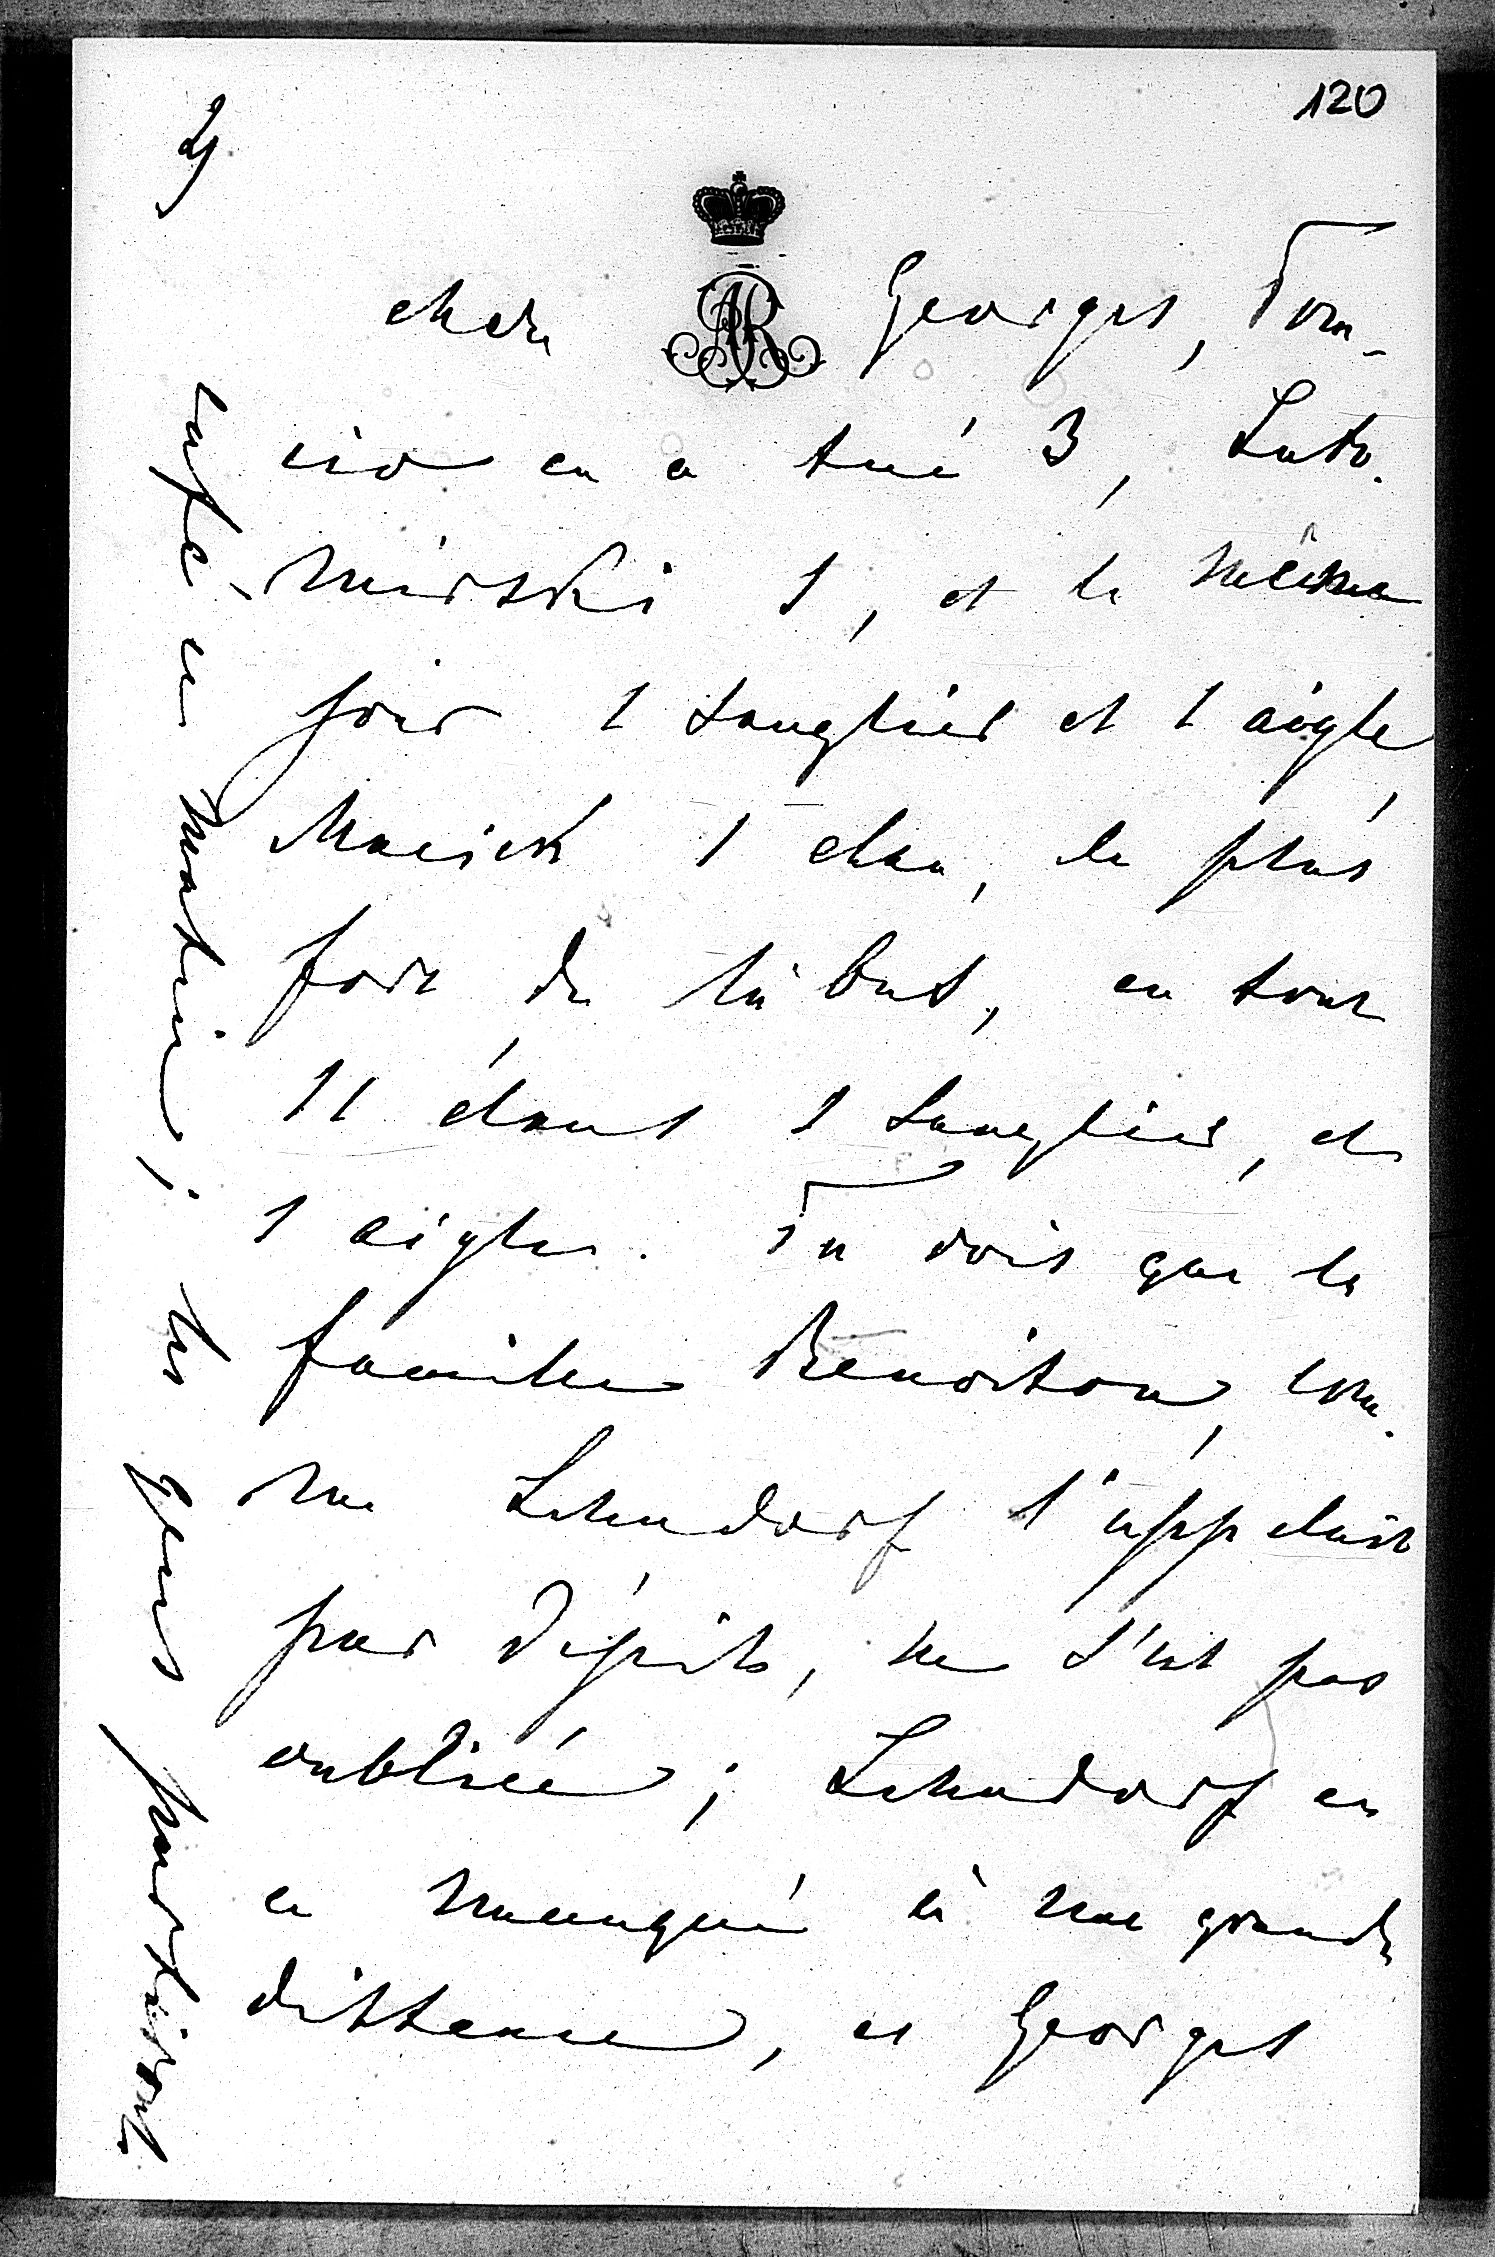 120
2)
chez Georges, Tom-
cio en a tué 3, Lubo-
mirski 1, et le même
jour 1 sanglier et 1 aigle,
Maciek 1 élan, le plus
fort de tous, en tout
11 élans 1 sanglier, et
1 aigle. Tu vois que la
famille Benoiton, com-
me Lehndorf l'appelait
par dépit, ne s'est pas
oubliée; Lehndorf en
a manqué à une grande
distance, et Georges
café le matin; les gens partiront